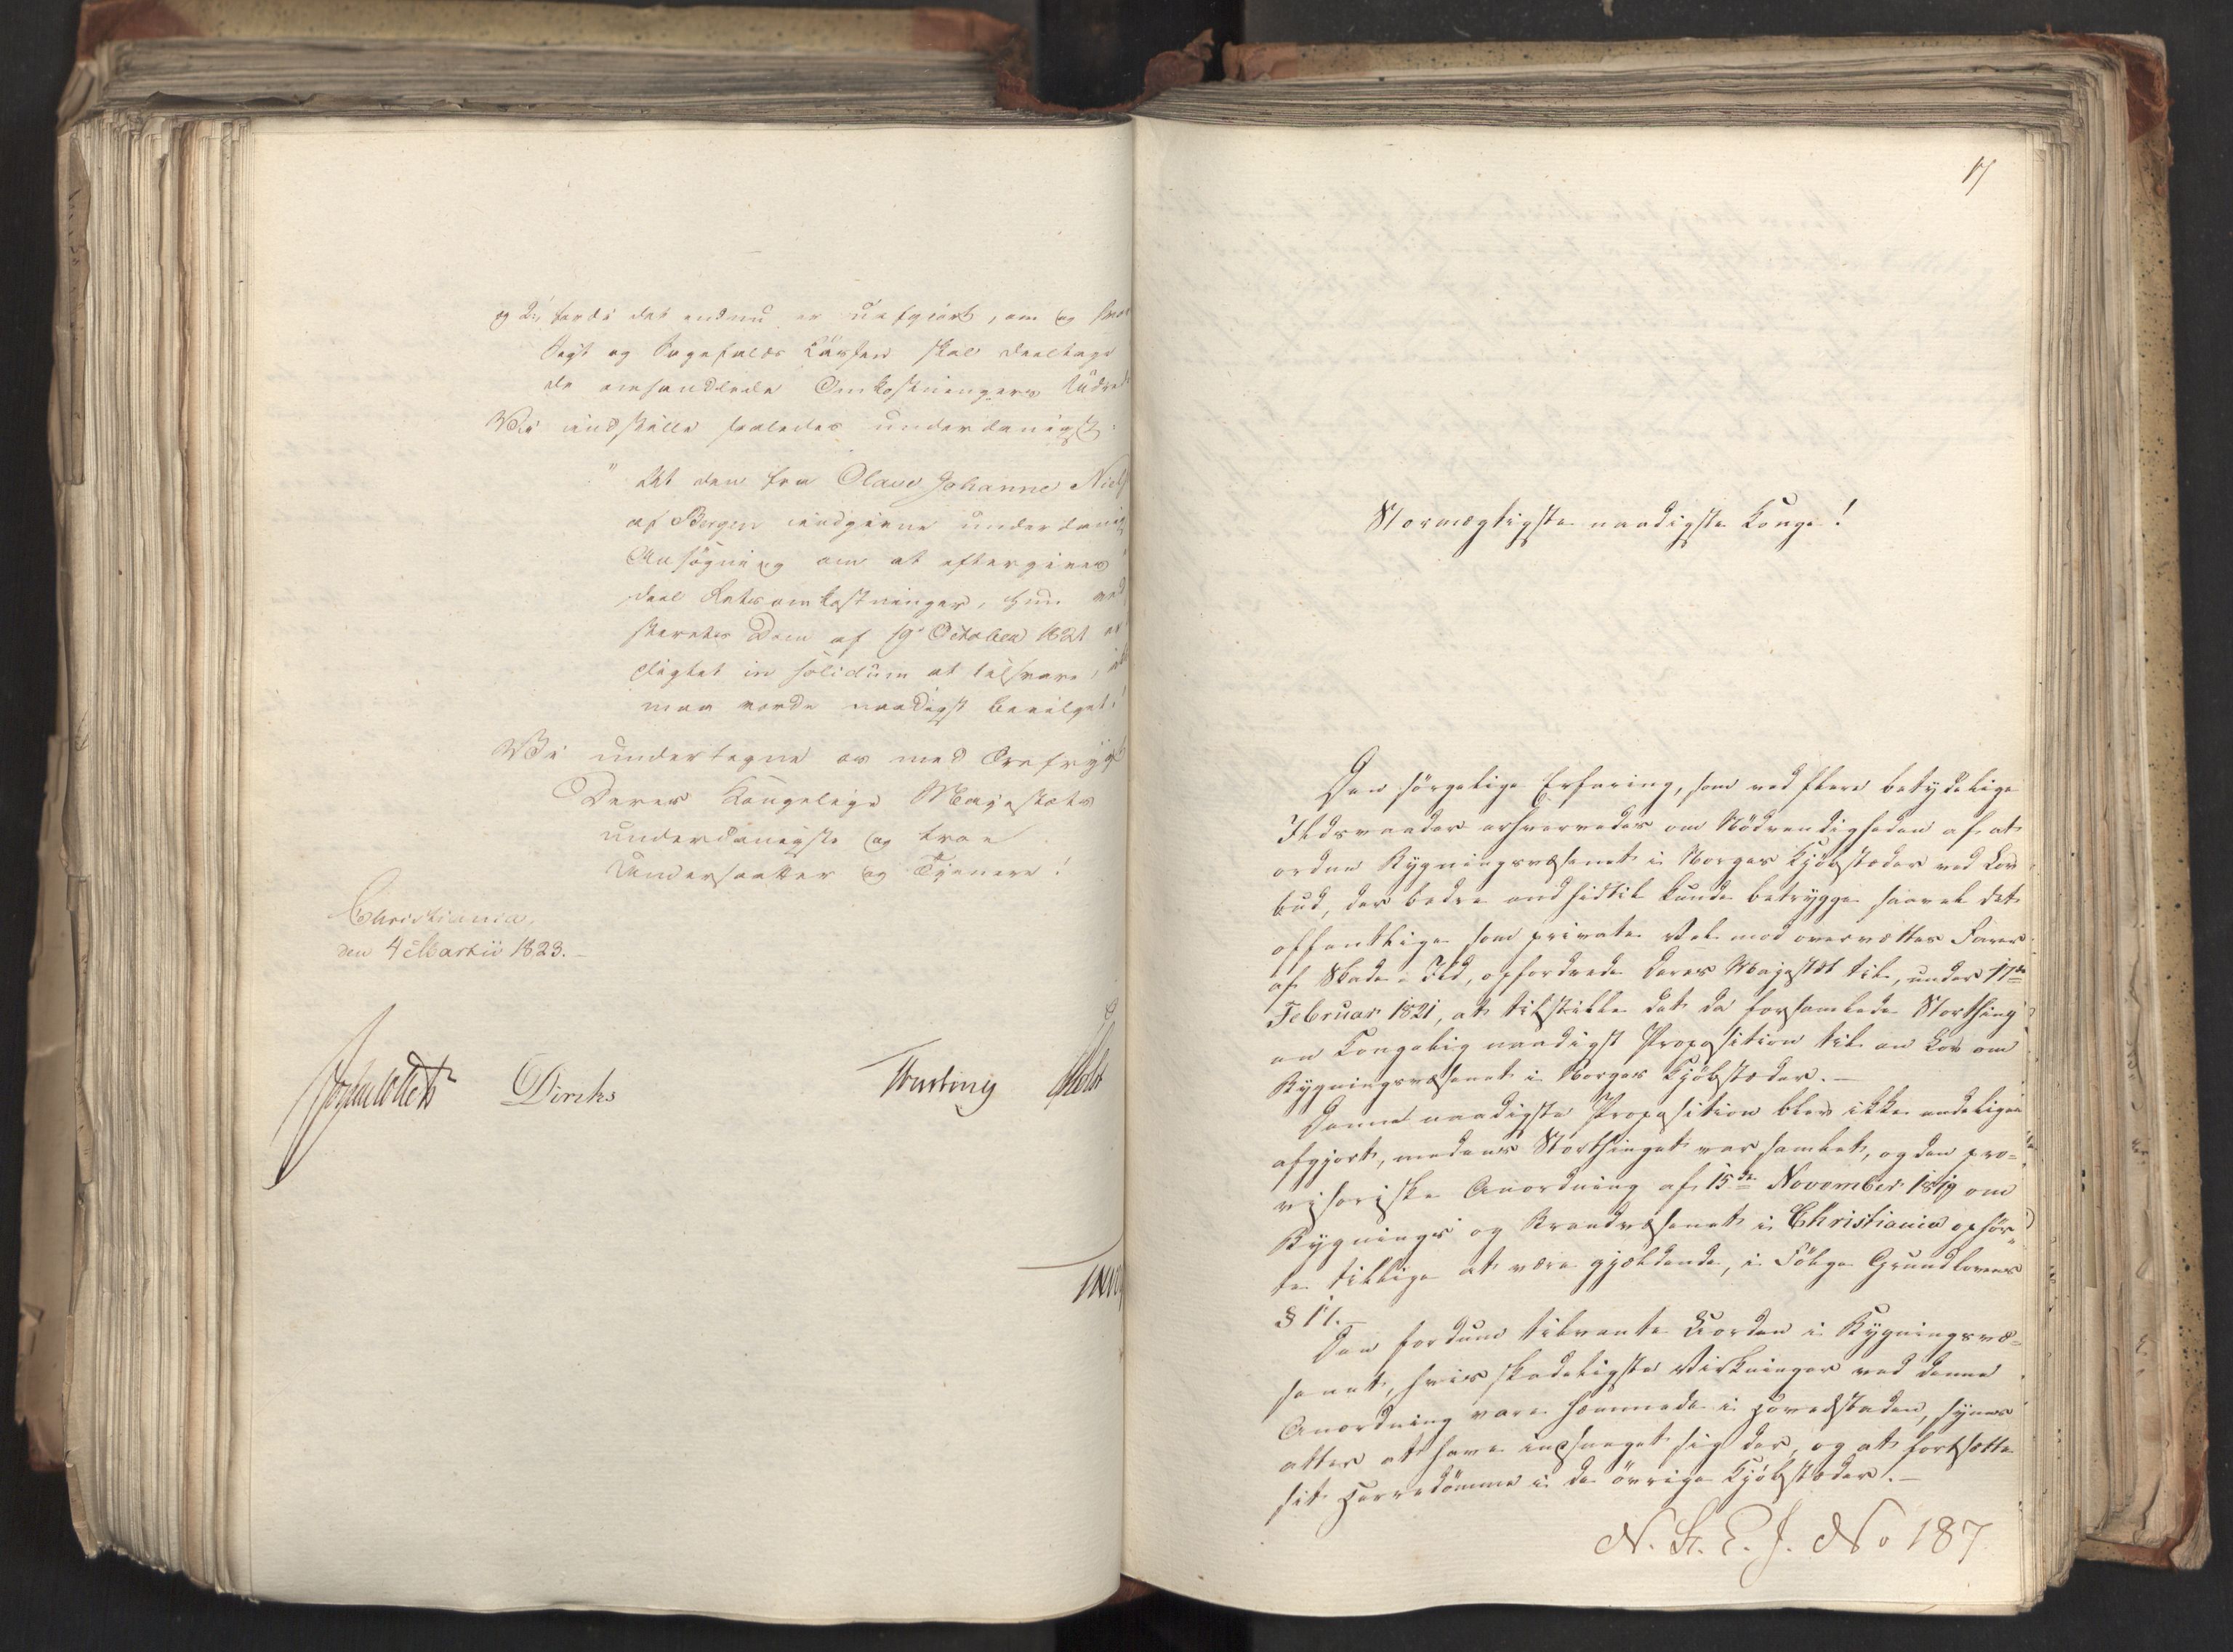 og 2, fordi det endnu er uafgiort, om og hvor
Sigt og Sagefaldskassen skal deeltage
de omhandlede Omkostningers Udred
Vi indstille saaledes underdanigst:
"At den fra Olave Johanne Niels
af Bergen indgivne underdanig
Ansøgning om at eftergives
deel Retsomkostninger, hun ved
sterets Dom af 19 October 1821 er
pligtet in solidum at tilsvare, ikke
maa vorde naadigst bevilget."
Vi undertegne os med Ærefrygt
Deres Kongelige Majestæts
underdanigste og troe
Undersaatter og Tjenere!
Christiania,
den 4 Martii 1823.
Diriks
Treschow
17
Stormægtigste naadigste Konge!
Den sørgelige Erfaring, som ved flere betydelige
Ildsvaader erhvervedes om Nødvendigheden af at
ordne Bygningsvæsenet i Norges Kjøbstæder ved Lov
bud, der bedre end hidtil kunde betrygge saavel det
offentlige som private Vel mod overvættes Farer
af Skade i Ild, opfordrede Deres Majestæt til, under 17de
Februar 1821, at tilstille det da forsamlede Storthing
en Kongelig naadigst Proposition til en Lov om
Bygningsvæsenet i Norges Kjøbstæder.—
Denne naadigste Proposition blev ikke endeligen
afgjort, medens Storthinget var samlet, og den pro=
visoriske Anordning af 15de November 1819 om
Bygnings og Brandvæsenet i Christiania ophør=
te tillige at være gjældende, i Følge Grundlovens
§ 17.—
Den fordum tilvante Uorden i Bygningsvæ=
senet, hvis skadeligste Virkninger ved denne
Anordning vare hæmmede i Hovedstaden, synes
atter at have indsneget sig der, og at fortsætte
sit Herredømme i de øvrige Kjøbstæder.—
N. St. E. J. No 187